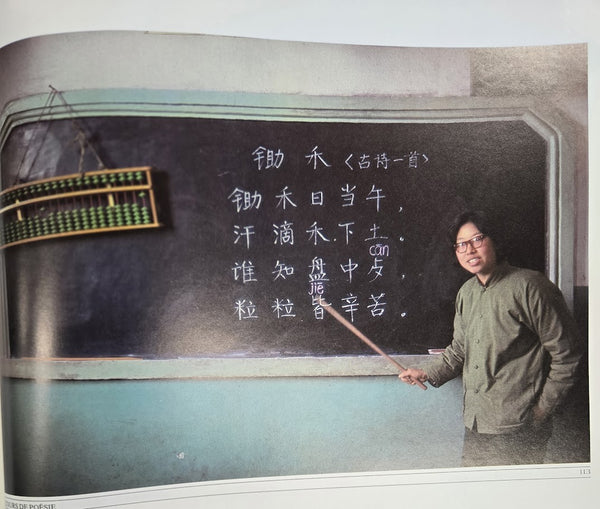 锄禾〈古诗一首〉
锄禾日当午，
汗滴禾下土。
cān
谁知盘中歺，
jiē
粒粒皆辛苦。
113
DE POÉSIE